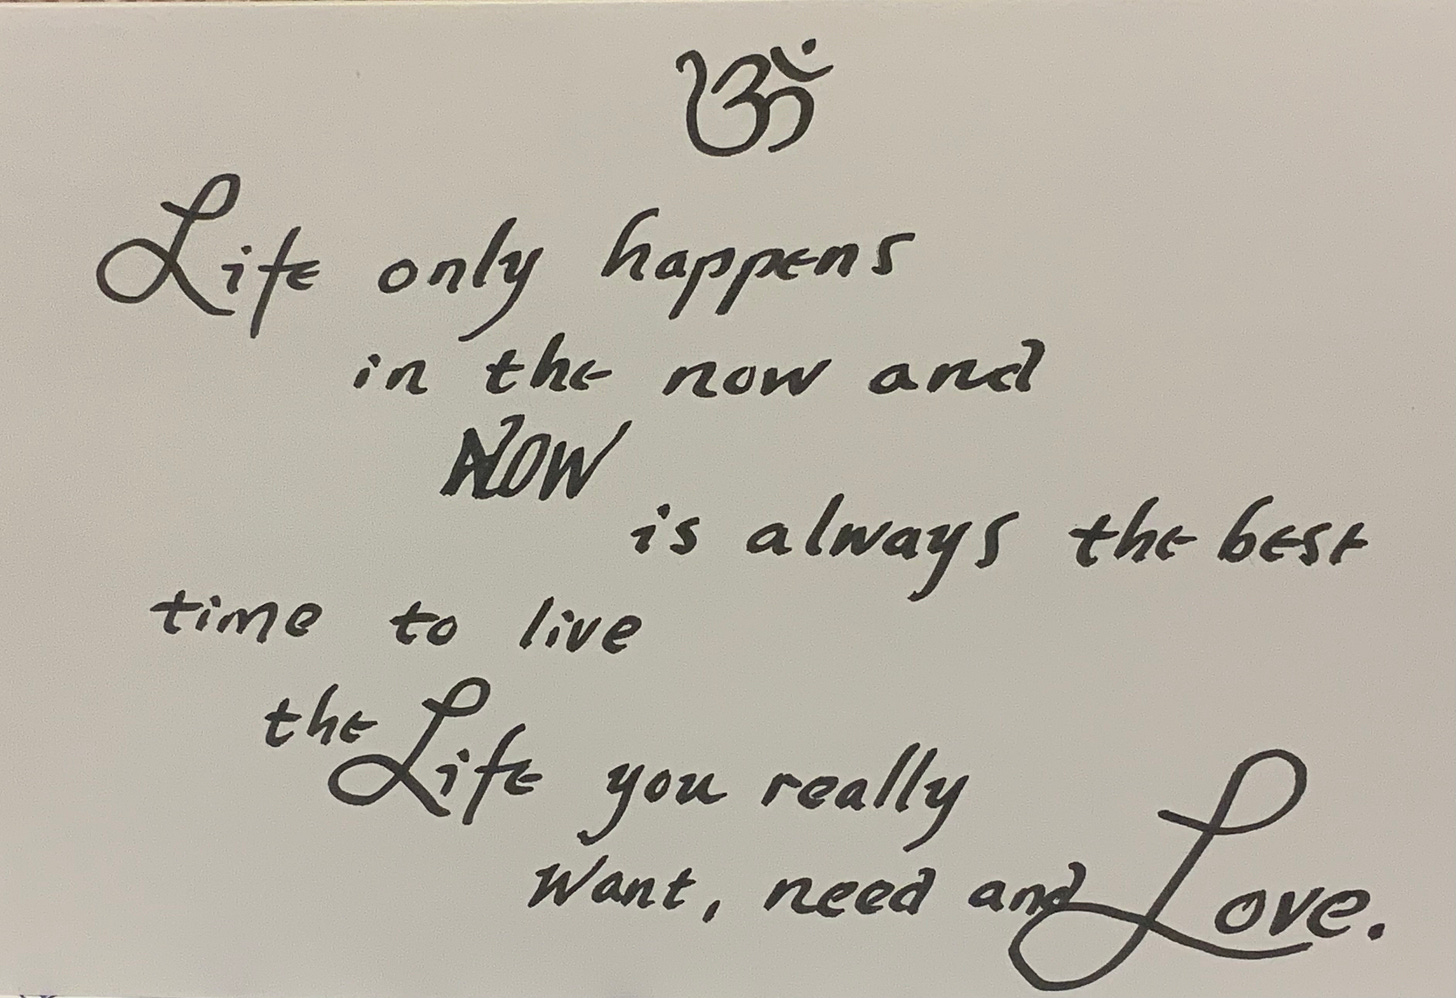 ॐ
Life only happens
in the now and
NOW
is always the best
time to live
the Life you really
want, need and Love.